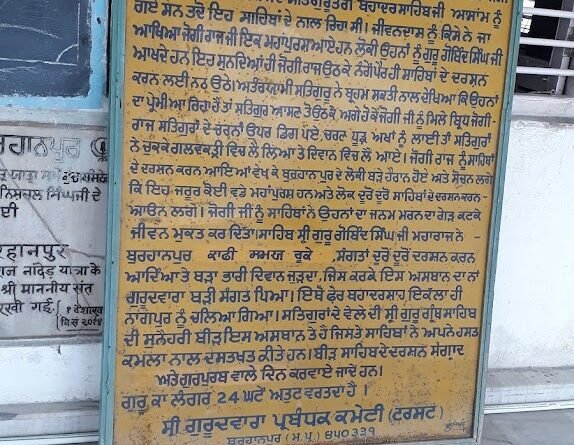 ਗਏ ਸਨ ਤਦੋਂ ਇਹ ਸਾਹਿਬਾਂ ਦੇ ਨਾਲ ਰਿਹਾ ਸੀ। ਜੀਵਨਦਾਸ ਨੂੰ ਕਿਸੇ ਨੇ ਜਾ
ਆਖਿਆ ਜੋਗੀ ਰਾਜ ਜੀ ਇਕ ਮਹਾਪੁਰਸ਼ ਆਏ ਹਨ ਲੋਕੀ ਉਹਨਾਂ ਨੂੰ ਗੁਰੂ ਗੋਬਿੰਦ ਸਿੰਘ ਜੀ
ਆਖਦੇ ਹਨ ਇਹ ਸੁਨਦਿਆਂ ਹੀ ਜੋਗੀ ਰਾਜ ਉਠਕੇ ਨੰਗੇ ਪੈਰੀਂ ਹੀ ਸਾਹਿਬਾਂ ਦੇ ਦਰਸ਼ਨ
ਕਰਨ ਲਈ ਨਠ ਉਠੇ। ਅੰਤਰਯਾਮੀ ਸਤਿਗੁਰੂ ਨੇ ਬ੍ਰਹਮ ਸ਼ਕਤੀ ਨਾਲ ਦੇਖਿਆ ਕਿ ਉਹਨਾਂ
ਦਾ ਪ੍ਰੇਮੀ ਆ ਰਿਹਾ ਹੈ ਤਾਂ ਸਤਿਗੁਰ ਆਸਣ ਤੋਂ ਉਠਕੇ ਅਗੇ ਹੋਕੇ ਜੋਗੀ ਜੀ ਨੂੰ ਮਿਲੇ ਬ੍ਰਿਧ ਜੋਗੀ-
ਰਾਜ ਸਤਿਗੁਰਾਂ ਦੇ ਚਰਨਾਂ ਉਪਰ ਡਿਗ ਪਏ, ਚਰਣ ਧੂੜ ਅਖਾਂ ਨੂੰ ਲਾਈ ਤਾਂ ਸਤਿਗੁਰਾਂ
ਨੇ ਚੁਕਕੇ ਗਲਵਕੜੀ ਵਿਚ ਲੈ ਲਿਆ ਤੇ ਦਿਵਾਨ ਵਿਚ ਲੈ ਆਏ। ਜੋਗੀ ਰਾਜ ਨੂੰ ਸਾਹਿਬਾਂ
ਦੇ ਦਰਸ਼ਨ ਕਰਨ ਆਇਆਂ ਵੇਖ ਕੇ ਬੁਰਹਾਨਪੁਰ ਦੇ ਲੋਕੀ ਬੜੇ ਹੈਰਾਨ ਹੋਏ ਅਤੇ ਸੋਚਣ ਲਗੇ
ਕਿ ਇਹ ਜ਼ਰੂਰ ਕੋਈ ਵਡੇ ਮਹਾਂਪੁਰਸ਼ ਹਨ ਅਤੇ ਲੋਕ ਦੂਰੋਂ ਦੂਰੋਂ ਸਾਹਿਬਾਂ ਦੇ ਦਰਸ਼ਨ ਕਰਨ-
ਆਉਨ ਲਗੇ। ਜੋਗੀ ਜੀ ਨੂੰ ਸਾਹਿਬਾਂ ਨੇ ਉਹਨਾਂ ਦਾ ਜਨਮ ਮਰਨ ਦਾ ਗੇੜ ਕਟਕੇ
ਜੀਵਨ ਮੁਕਤ ਕਰ ਦਿਤਾ। ਸਾਹਿਬ ਸ੍ਰੀ ਗੁਰੂ ਗੋਬਿੰਦ ਸਿੰਘ ਜੀ ਮਹਾਰਾਜ ਨੇ
ਬੁਰਹਾਨਪੁਰ ਕਾਫੀ ਸਮਯ ਰੁਕੇ ਸੰਗਤਾਂ ਦੂਰੋਂ ਦੂਰੋਂ ਦਰਸ਼ਨ ਕਰਨ
ਆਦਿਆਂ ਤੇ ਬੜਾ ਭਾਰੀ ਦਿਵਾਨ ਜੁੜਦਾ, ਜਿਸ ਕਰਕੇ ਇਸ ਅਸਥਾਨ ਦਾ ਨਾਂ
ਗੁਰਦਵਾਰਾ ਬੜੀ ਸੰਗਤ ਪਿਆ। ਇਥੋਂ ਫੇਰ ਬਹਾਦਰਸ਼ਾਹ ਇਕੱਲਾ ਹੀ
ਨਾਗਪੁਰ ਨੂੰ ਚਲਿਆ ਗਿਆ। ਸਤਿਗੁਰਾਂ ਦੇ ਵੇਲੇ ਦੀ ਸ੍ਰੀ ਗੁਰੂ ਗ੍ਰੰਥ ਸਾਹਿਬ
ਦੀ ਸੁਨੇਹਰੀ ਬੀੜ ਇਸ ਅਸਥਾਨ ਤੇ ਹੈ ਜਿਸਤੇ ਸਾਹਿਬਾਂ ਨੇ ਅਪਨੇ ਹਸਤ
ਕਮਲਾਂ ਨਾਲ ਦਸਤਖਤ ਕੀਤੇ ਹਨ। ਬੀੜ ਸਾਹਿਬ ਦੇ ਦਰਸ਼ਨ ਸੰਗ੍ਰਾਦ
ਅਤੇ ਗੁਰਪੁਰਬ ਵਾਲੇ ਦਿਨ ਕਰਵਾਏ ਜਾਦੇ ਹਨ।
ਗੁਰੂ ਕਾ ਲੰਗਰ 24 ਘਟੇਂ ਅਤੁਟ ਵਰਤਦਾ ਹੈ।
ਸ੍ਰੀ ਗੁਰੂਦਵਾਰਾ ਪ੍ਰਬੰਧਕ ਕਮੇਟੀ (ਟਰਸਟ)
ਬੁਰਹਾਨਪੁਰ (ਮ.ਪ੍ਰ) ੪੫੦੩੩੧
ਨਿਸਚਲ ਸਿੰਘ ਜੀ ਦੇ
रहानपुर
नांदेड़ यात्रा के
श्री माननीय संत
रखी गई.